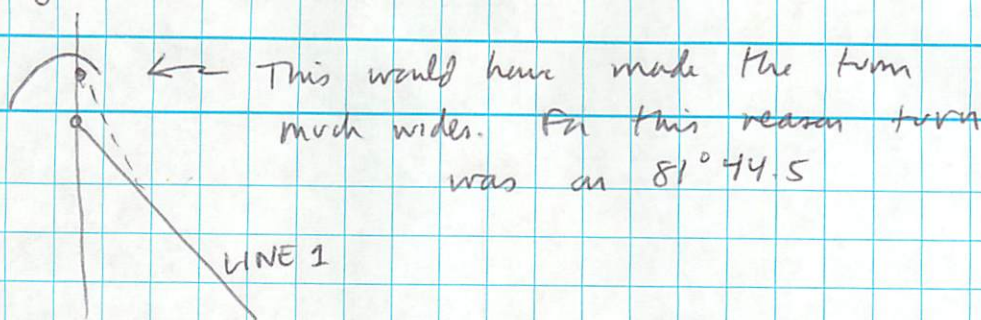 This would have made the turn
much wider. For this reason turn
was on 81°44.5
LINE 1